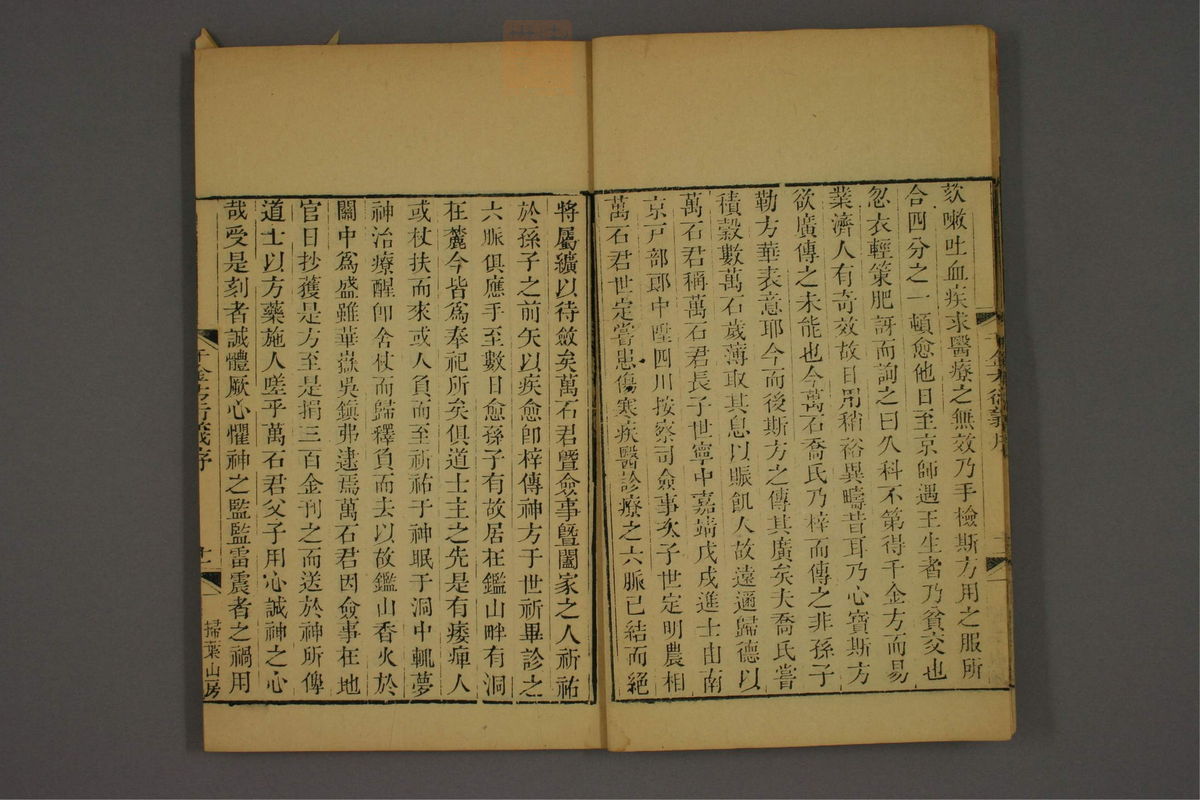 欬嗽吐血疾求醫療之無效乃手檢斯方用之服所
合四分之一頓愈他日至京師遇王生者乃貧交也
忽衣輕策肥訝而詢之曰久科不第得千金方而易
業濟人有奇效故日用稍裕異疇昔耳乃心寶斯方
欲廣傳之未能也今萬石喬氏乃梓而傳之非孫子
勒方華表意耶今而後斯方之傳其廣矣夫喬氏嘗
積穀數萬石歲薄取其息以賑飢人故遠邇歸德以
萬石君稱萬石君長子世寧中嘉靖戊戌進士由南
京戸部郎中陞四川按察司僉事次子世定明農相
萬石君世定嘗患傷寒疾醫診療之六脈已結而絕
將屬纊以待斂矣萬石君曁僉事曁闔家之人祈祐
於孫子之前矢以疾愈卽梓傳神方于世祈畢診之
六脈俱應手至數日愈孫子有故居在鑑山畔有洞
在麓今皆爲奉祀所矣俱道士主之先是有痿痺人
或杖扶而來或人負而至祈祐于神眠于洞中輒夢
神治療醒卽舍杖而歸釋負而去以故鑑山香火於
關中爲盛雖華嶽吳鎮弗逮焉萬石君因僉事在地
官日抄獲是方至是捐三百金刊之而送於神所俾
道士以方藥施人嗟乎萬石君父子用心誠神之心
哉受是刻者誠體厥心懼神之監監雷震者之禍用
千金方衍義序
掃葉山房